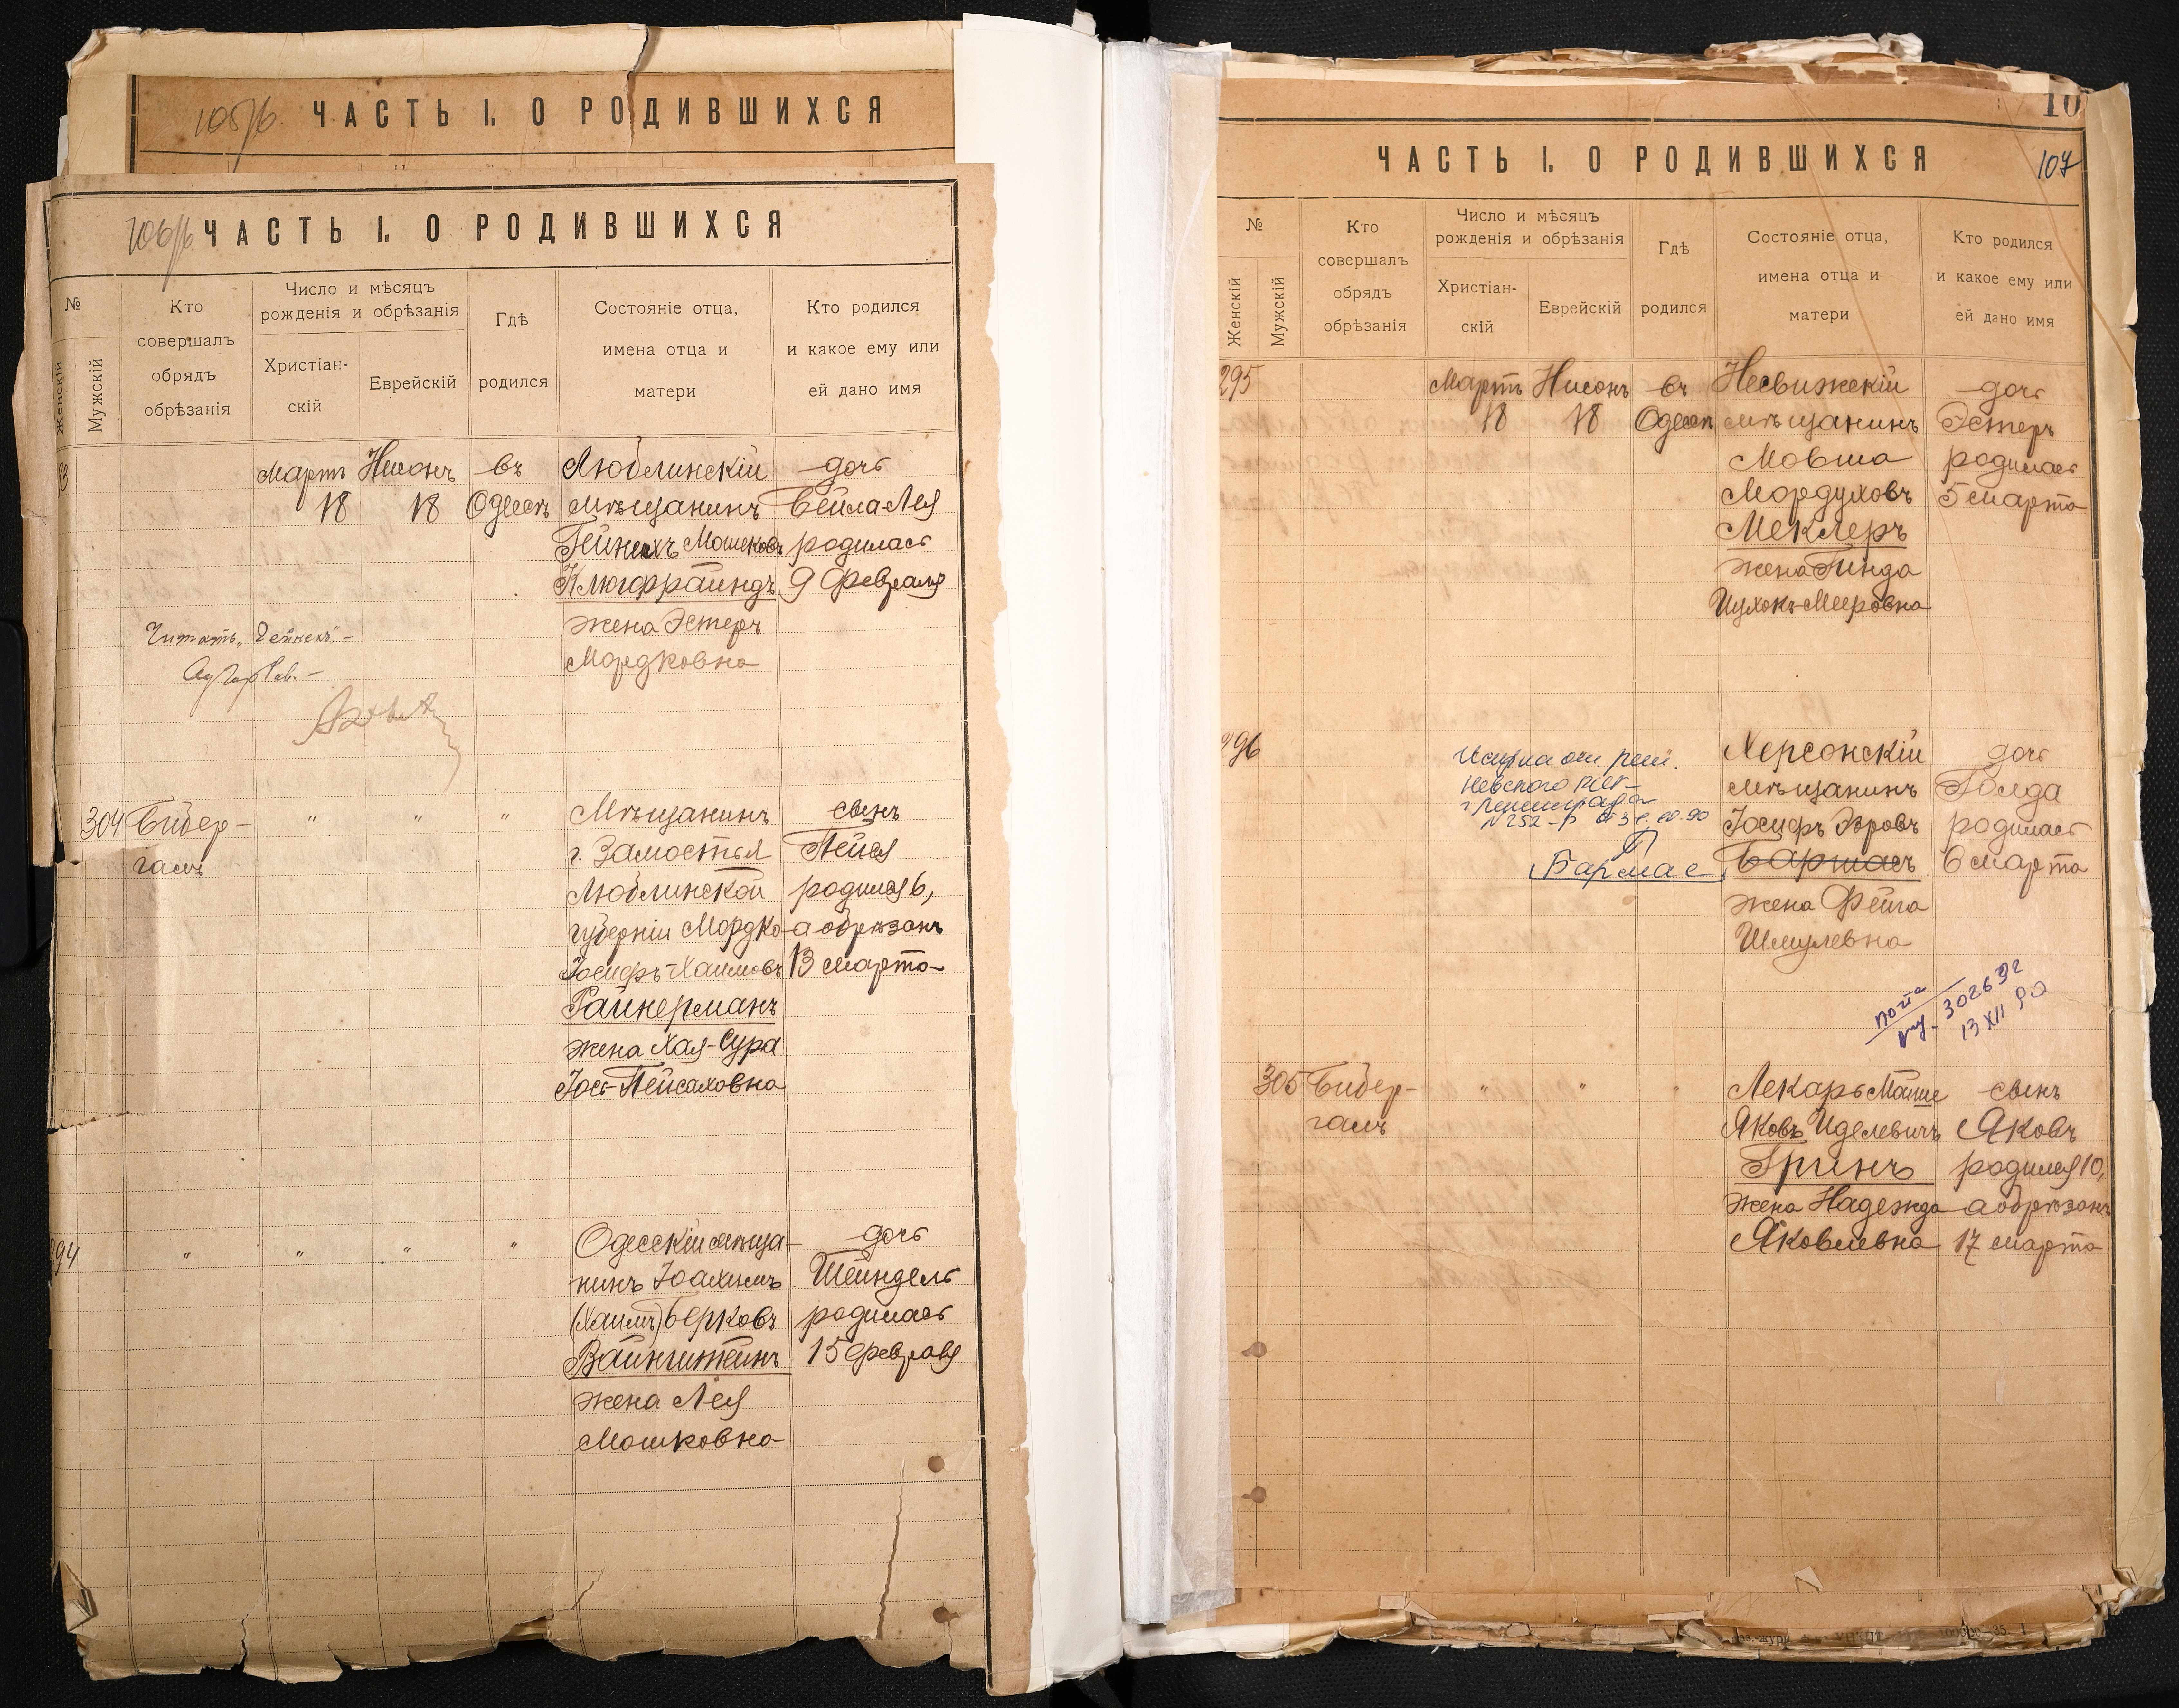 ЧАСТЬ I. О РОДИВШИХСЯ
106/б ЧАСТЬ I. О РОДИВШИХСЯ
№
Женскій
Мужскій
Кто
совершалъ
обрядъ
обрѣзанія
Число и мѣсяцъ
рожденія и обрѣзанія
Христіан-
скій
Еврейскій
Гдѣ
родился
Состояніе отца,
имена отца и
матери
Кто родился
и какое ему или
ей дано имя
Мартъ Нисонъ въ Люблинскій дочь
18 18 Одессѣ мѣщанинъ Бейла Лея
Гейнехъ Мошковъ родилась
Клюгфрайндъ 9 февраля
жена Эстеръ
Мордковна
Читать „Гейнехъ“ -
304 Бибер- " " " Мѣщанинъ сынъ
галъ г. Замостья Пейся
Люблинской родился 6,
губерніи Мордко- а обрѣзанъ
Іосифъ-Хаимовъ 13 марта
Райнерманъ
жена Хая-Сура
Іос-Пейсаховна
294 " " " " Одесскій мѣща- дочь
нинъ Іоахимъ Шейндель
(Хаимъ) Берковъ родилась
Вайнштейнъ 15 февраля
жена Лея
Мошковна
10
ЧАСТЬ I. О РОДИВШИХСЯ 107
№
Женскій
Мужскій
Кто
совершалъ
обрядъ
обрѣзанія
Число и мѣсяцъ
рожденія и обрѣзанія
Христіан-
скій
Еврейскій
Гдѣ
родился
Состояніе отца,
имена отца и
матери
Кто родился
и какое ему или
ей дано имя
295 Мартъ Нисонъ въ Несвижскій дочь
18 18 Одессѣ мѣщанинъ Эстеръ
Мовша родилась
Мордуховъ 5 марта
Меклеръ
жена Гинда
Ицхокъ-Мееровна
296 Херсонскій дочь
мѣщанинъ Голда
Іосифъ Эровъ родилась
Бармасъ 6 марта
жена Фейга
Шмулевна
Невского
г Ленинграда
N 252-р
Бармас
почта
302632
13 XII 90
305 Бибер- " " " Лекарь Мойше сынъ
галъ Яковъ Иделевичъ Яковъ
Гринъ родился 10,
жена Надежда а обрѣзанъ
Яковлевна 17 марта